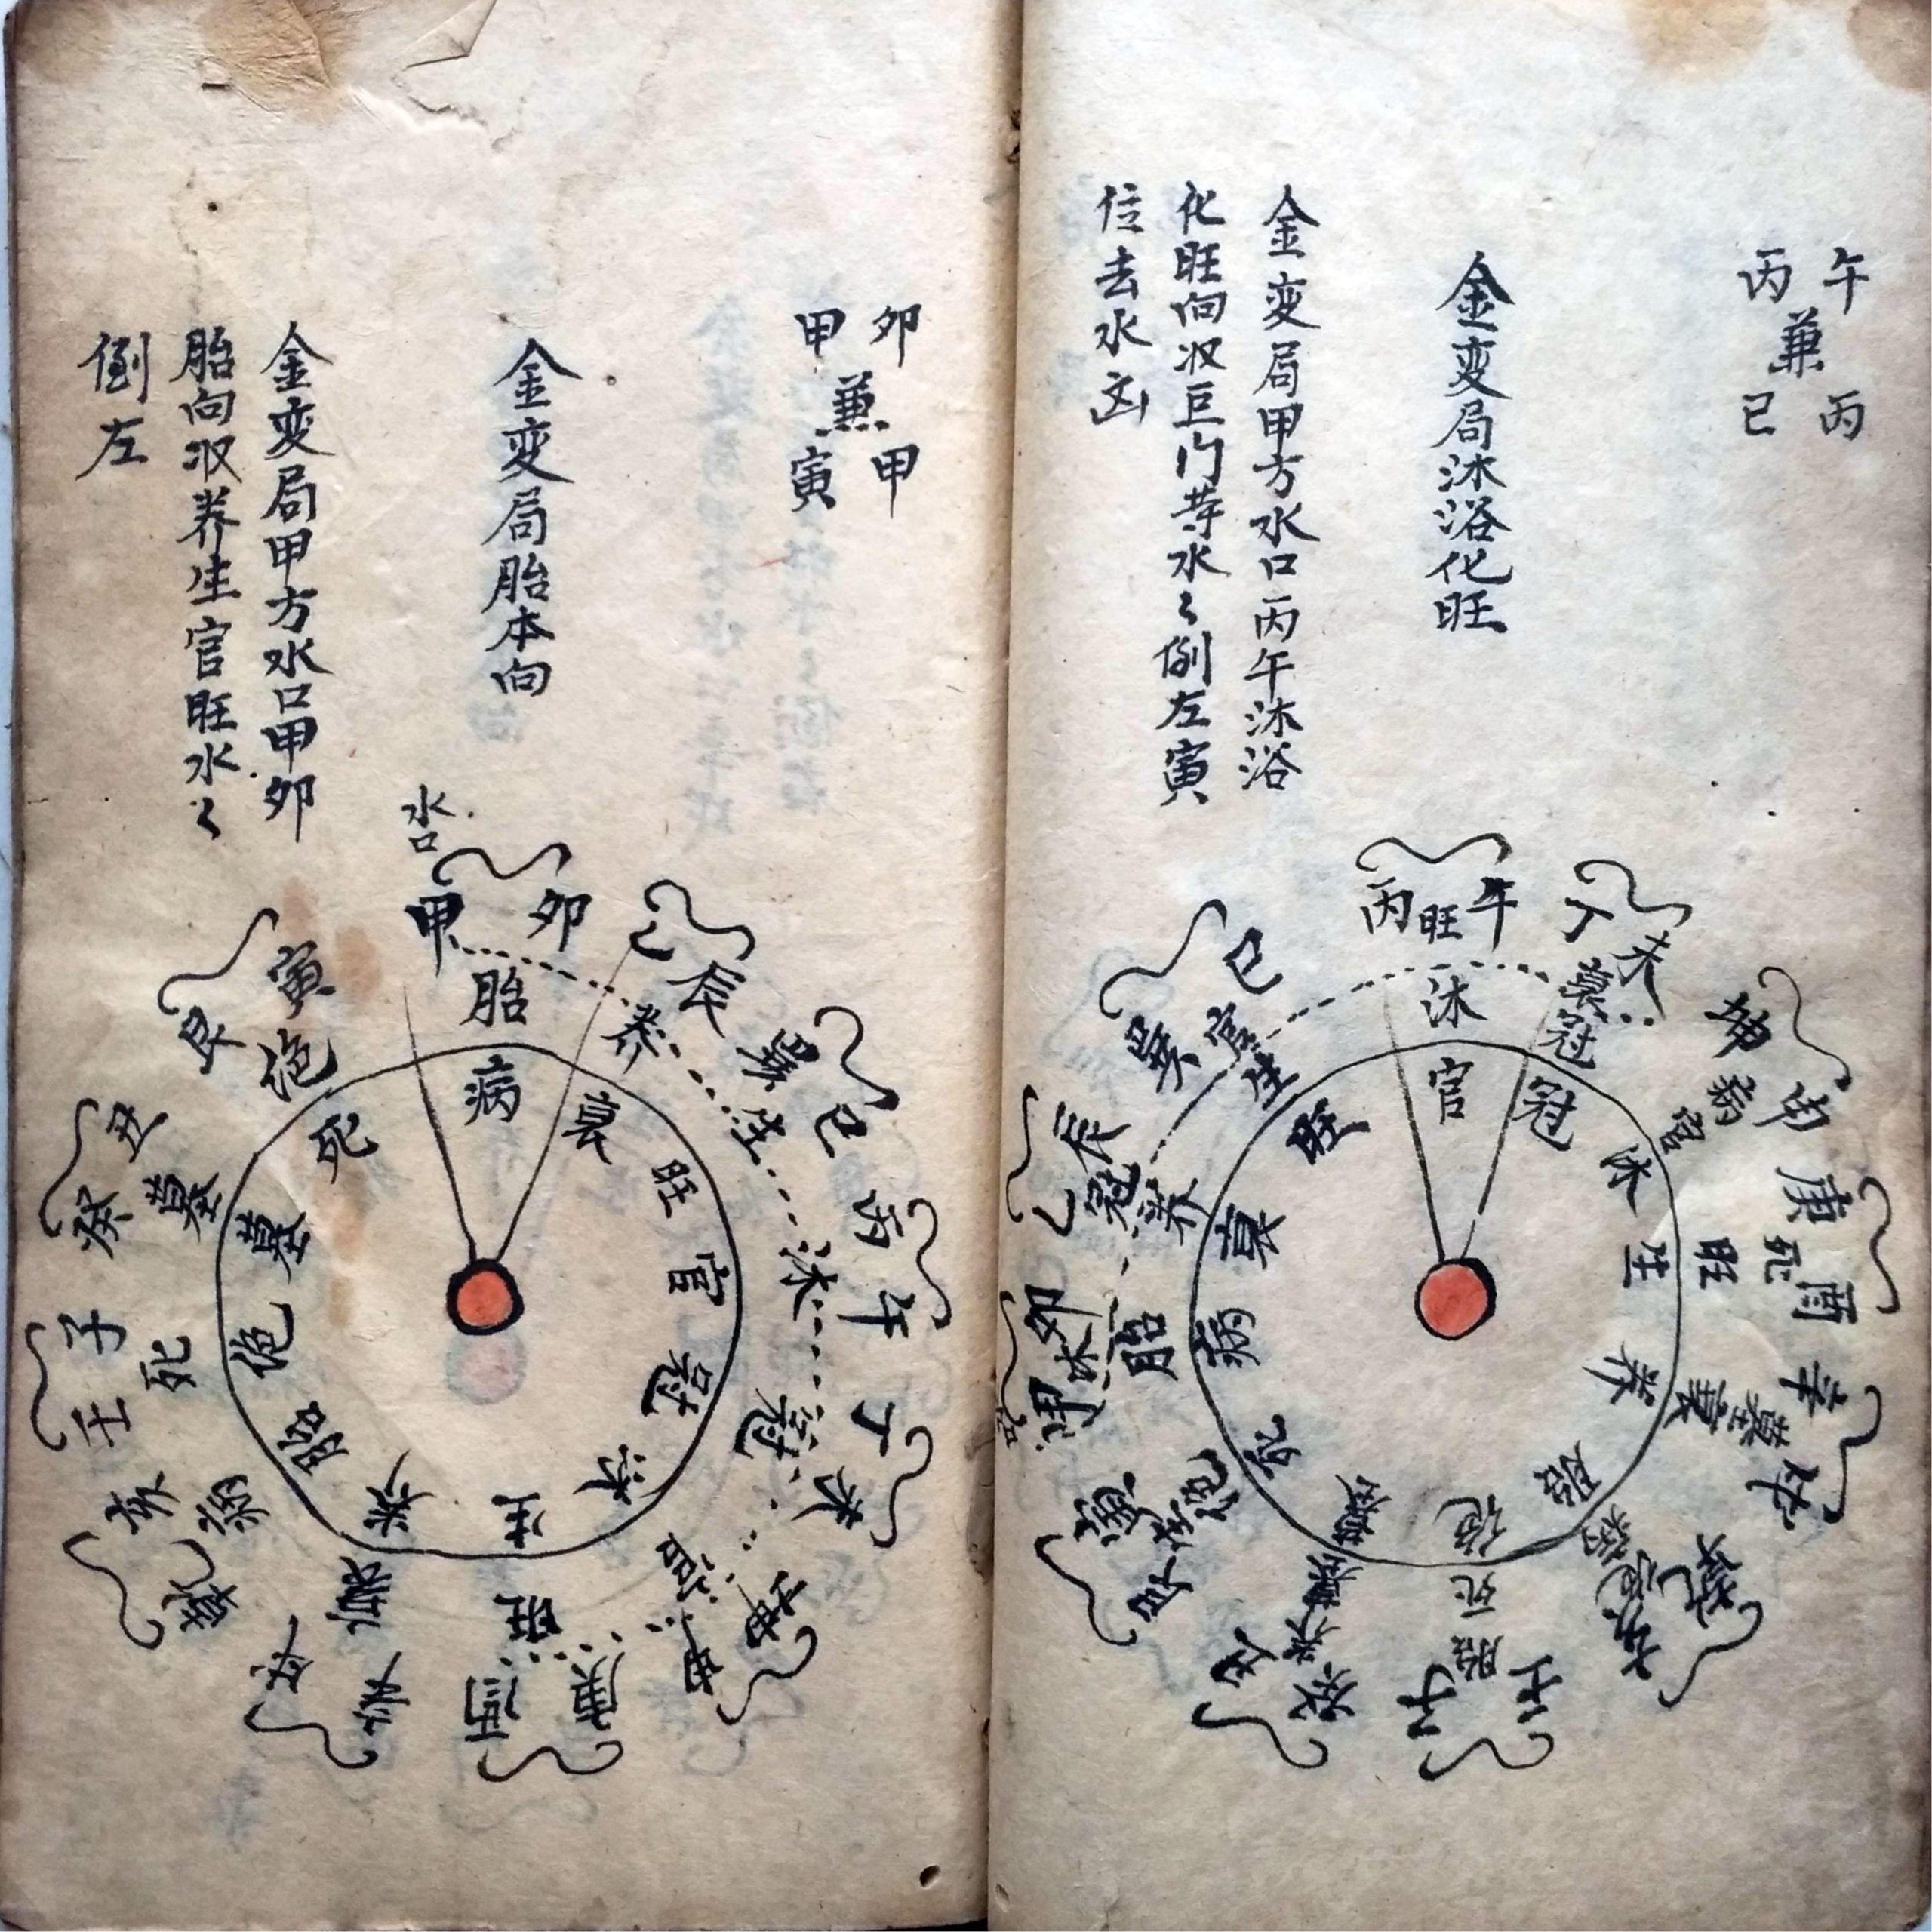 午丙
兼
丙巳
金变局沐浴化旺
金变局甲方水口丙午沐浴
化旺向収巨门芽水〻倒左寅
位去水凶
丙旺午
丁未
衰
冠
坤申
病
官
庚酉
死
旺
辛戌
墓
衰
乾亥
病
壬子
胎
死
癸丑
养
墓
艮寅
生
绝
甲卯
沐
胎
乙辰
冠
养
巽巳
官
生
沐
官
冠
沐
生
养
胎
绝
墓
死
病
衰
旺
卯甲
兼
甲寅
金变局胎本向
金变局甲方水口甲卯
胎向収养生官旺水〻
倒左
水口
甲卯
胎
乙辰
养
巽巳
生
丙午
沐
丁未
冠
坤申
官
庚酉
旺
辛戌
衰
乾亥
病
壬子
死
癸丑
墓
艮寅
绝
病
衰
旺
官
冠
沐
生
养
胎
绝
墓
死